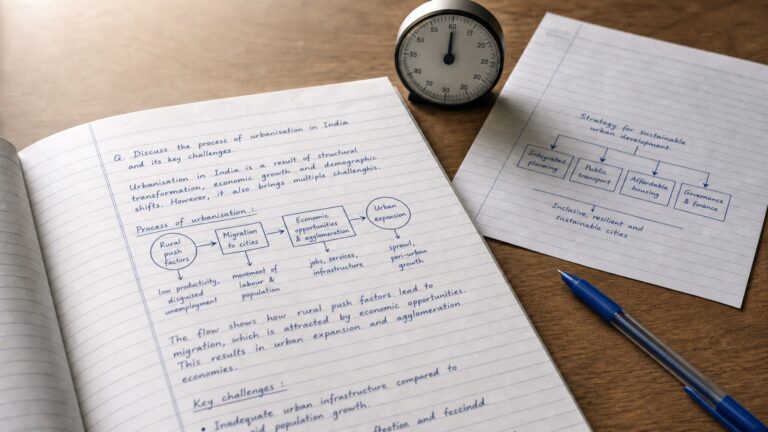 Q. Discuss the process of urbanisation in India
and its key challenges.
Urbanisation in India is a result of structural
transformation, economic growth and demographic
shifts. However, it also brings multiple challengbis.
Process of urbanisation :
Rural
push
factors
Migration
to cities
Economic
opportunities
& agglomeration
Urban
expansion
low productivity,
disguised
unemployment
movement of
labour &
population
jobs, services,
infrastructure
sprawl,
peri-urban
growth
The flow shows how rural push factors lead to
migration, which is attracted by economic opportunities.
This results in urban expansion and agglomeration
economies.
Key challenges :
• Inadequate urban infrastructure compared to
population growth.
and
60
55
50
Strategy for sustainable
urban development
Integrated
planning
Public
transport
Affordable
housing
Governance
& finance
Inclusive, resilient and
sustainable cities